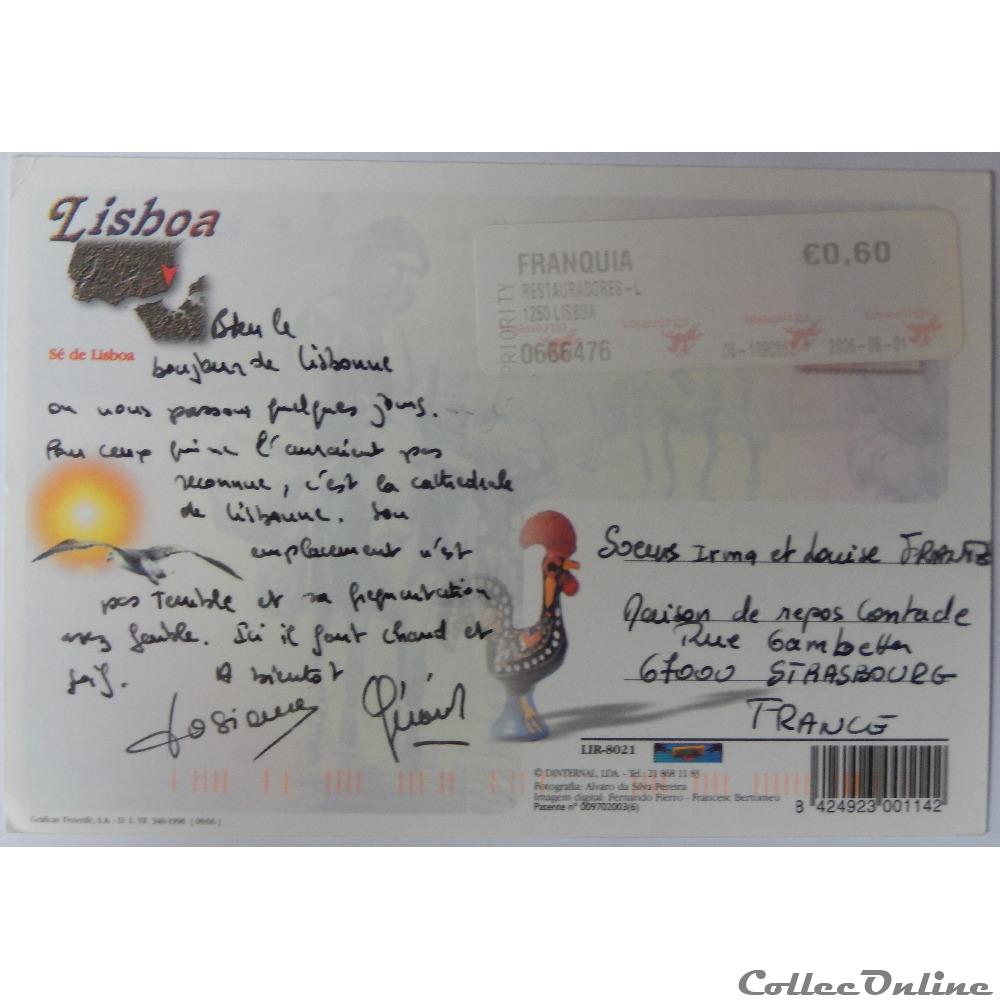 Lisboa
FRANQUIA
€0,60
RESTAURADORES-L
1250 LISBOA
PRIORITY
0666476
2006-06-01
Sé de Lisboa
boujour de Lisbonne
ou nous passons quelques jours.
Pour ceux qui ne l'auraient pas
reconnue, c'est la cathedrale
de Lisbonne. Son
emplacement n'est
pas Terrible et sa frequentation
assez faible. Ici il fait chaud et
soif.
A bientot
Josiane
Gérard
Soeurs Irma et Louise
Maison de repos Contade
Rue Gambetta
67000 STRASBOURG
FRANCE
LIR-8021
© DINTERNAL, LDA. - Tel.: 21 868 11 85
Fotografia: Alvaro da Silva Pereira
Imagem digital: Fernando Fierro - Francesc Bertomeu
Patente nº 009702003(6)
8 424923 001142
Gráficas Tenerife, S.A. - D. L. TF. 340-1998
CollecOnline